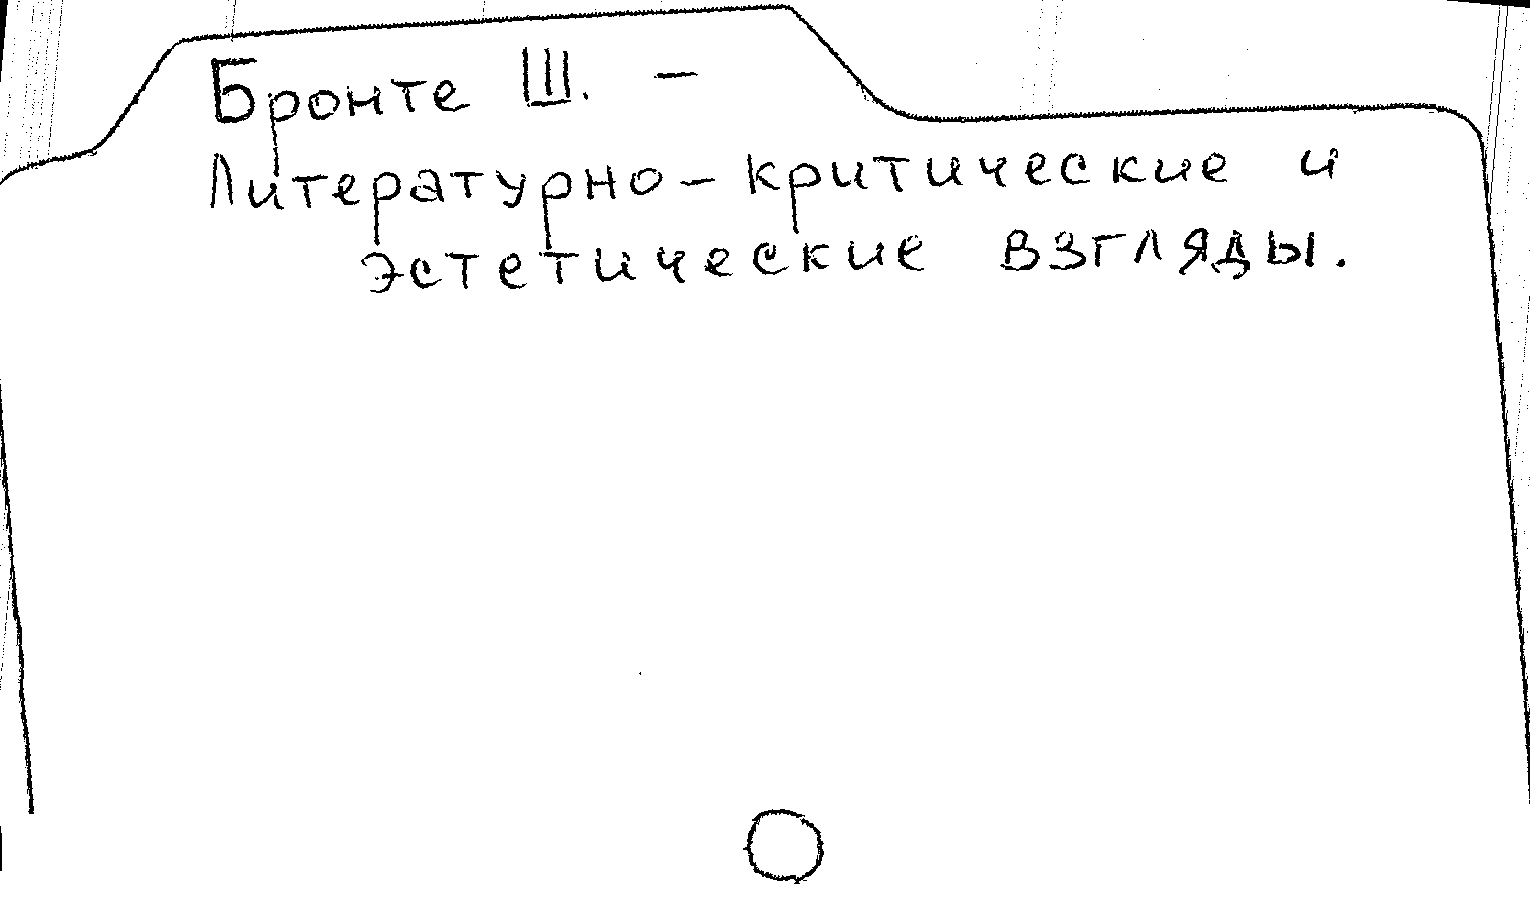 Бронте Ш. –
Литературно-критические и
эстетические взгляды.